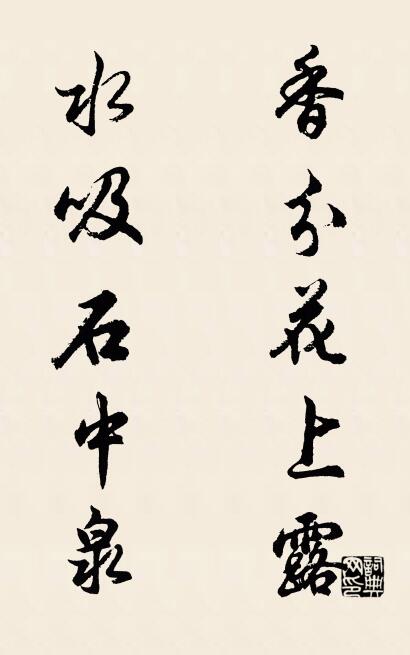 香分花上露
水吸石中泉
詞典網印